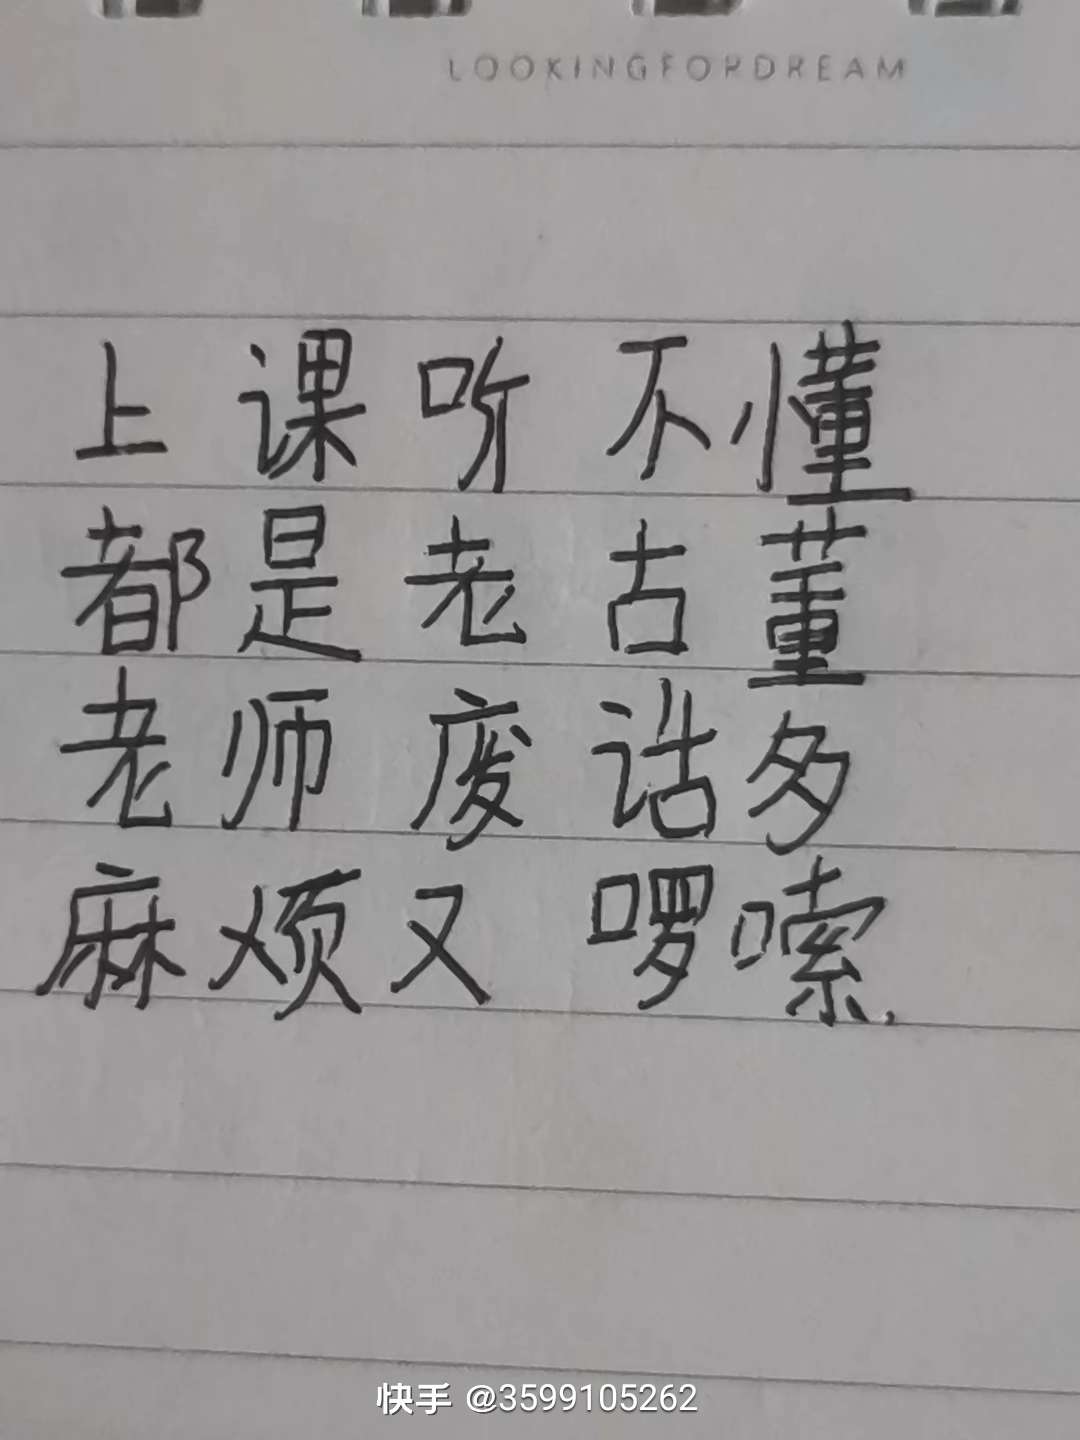 LOOKINGFORDREAM
上课听不懂
都是老古董
老师废话多
麻烦又啰嗦.
快手 @3599105262